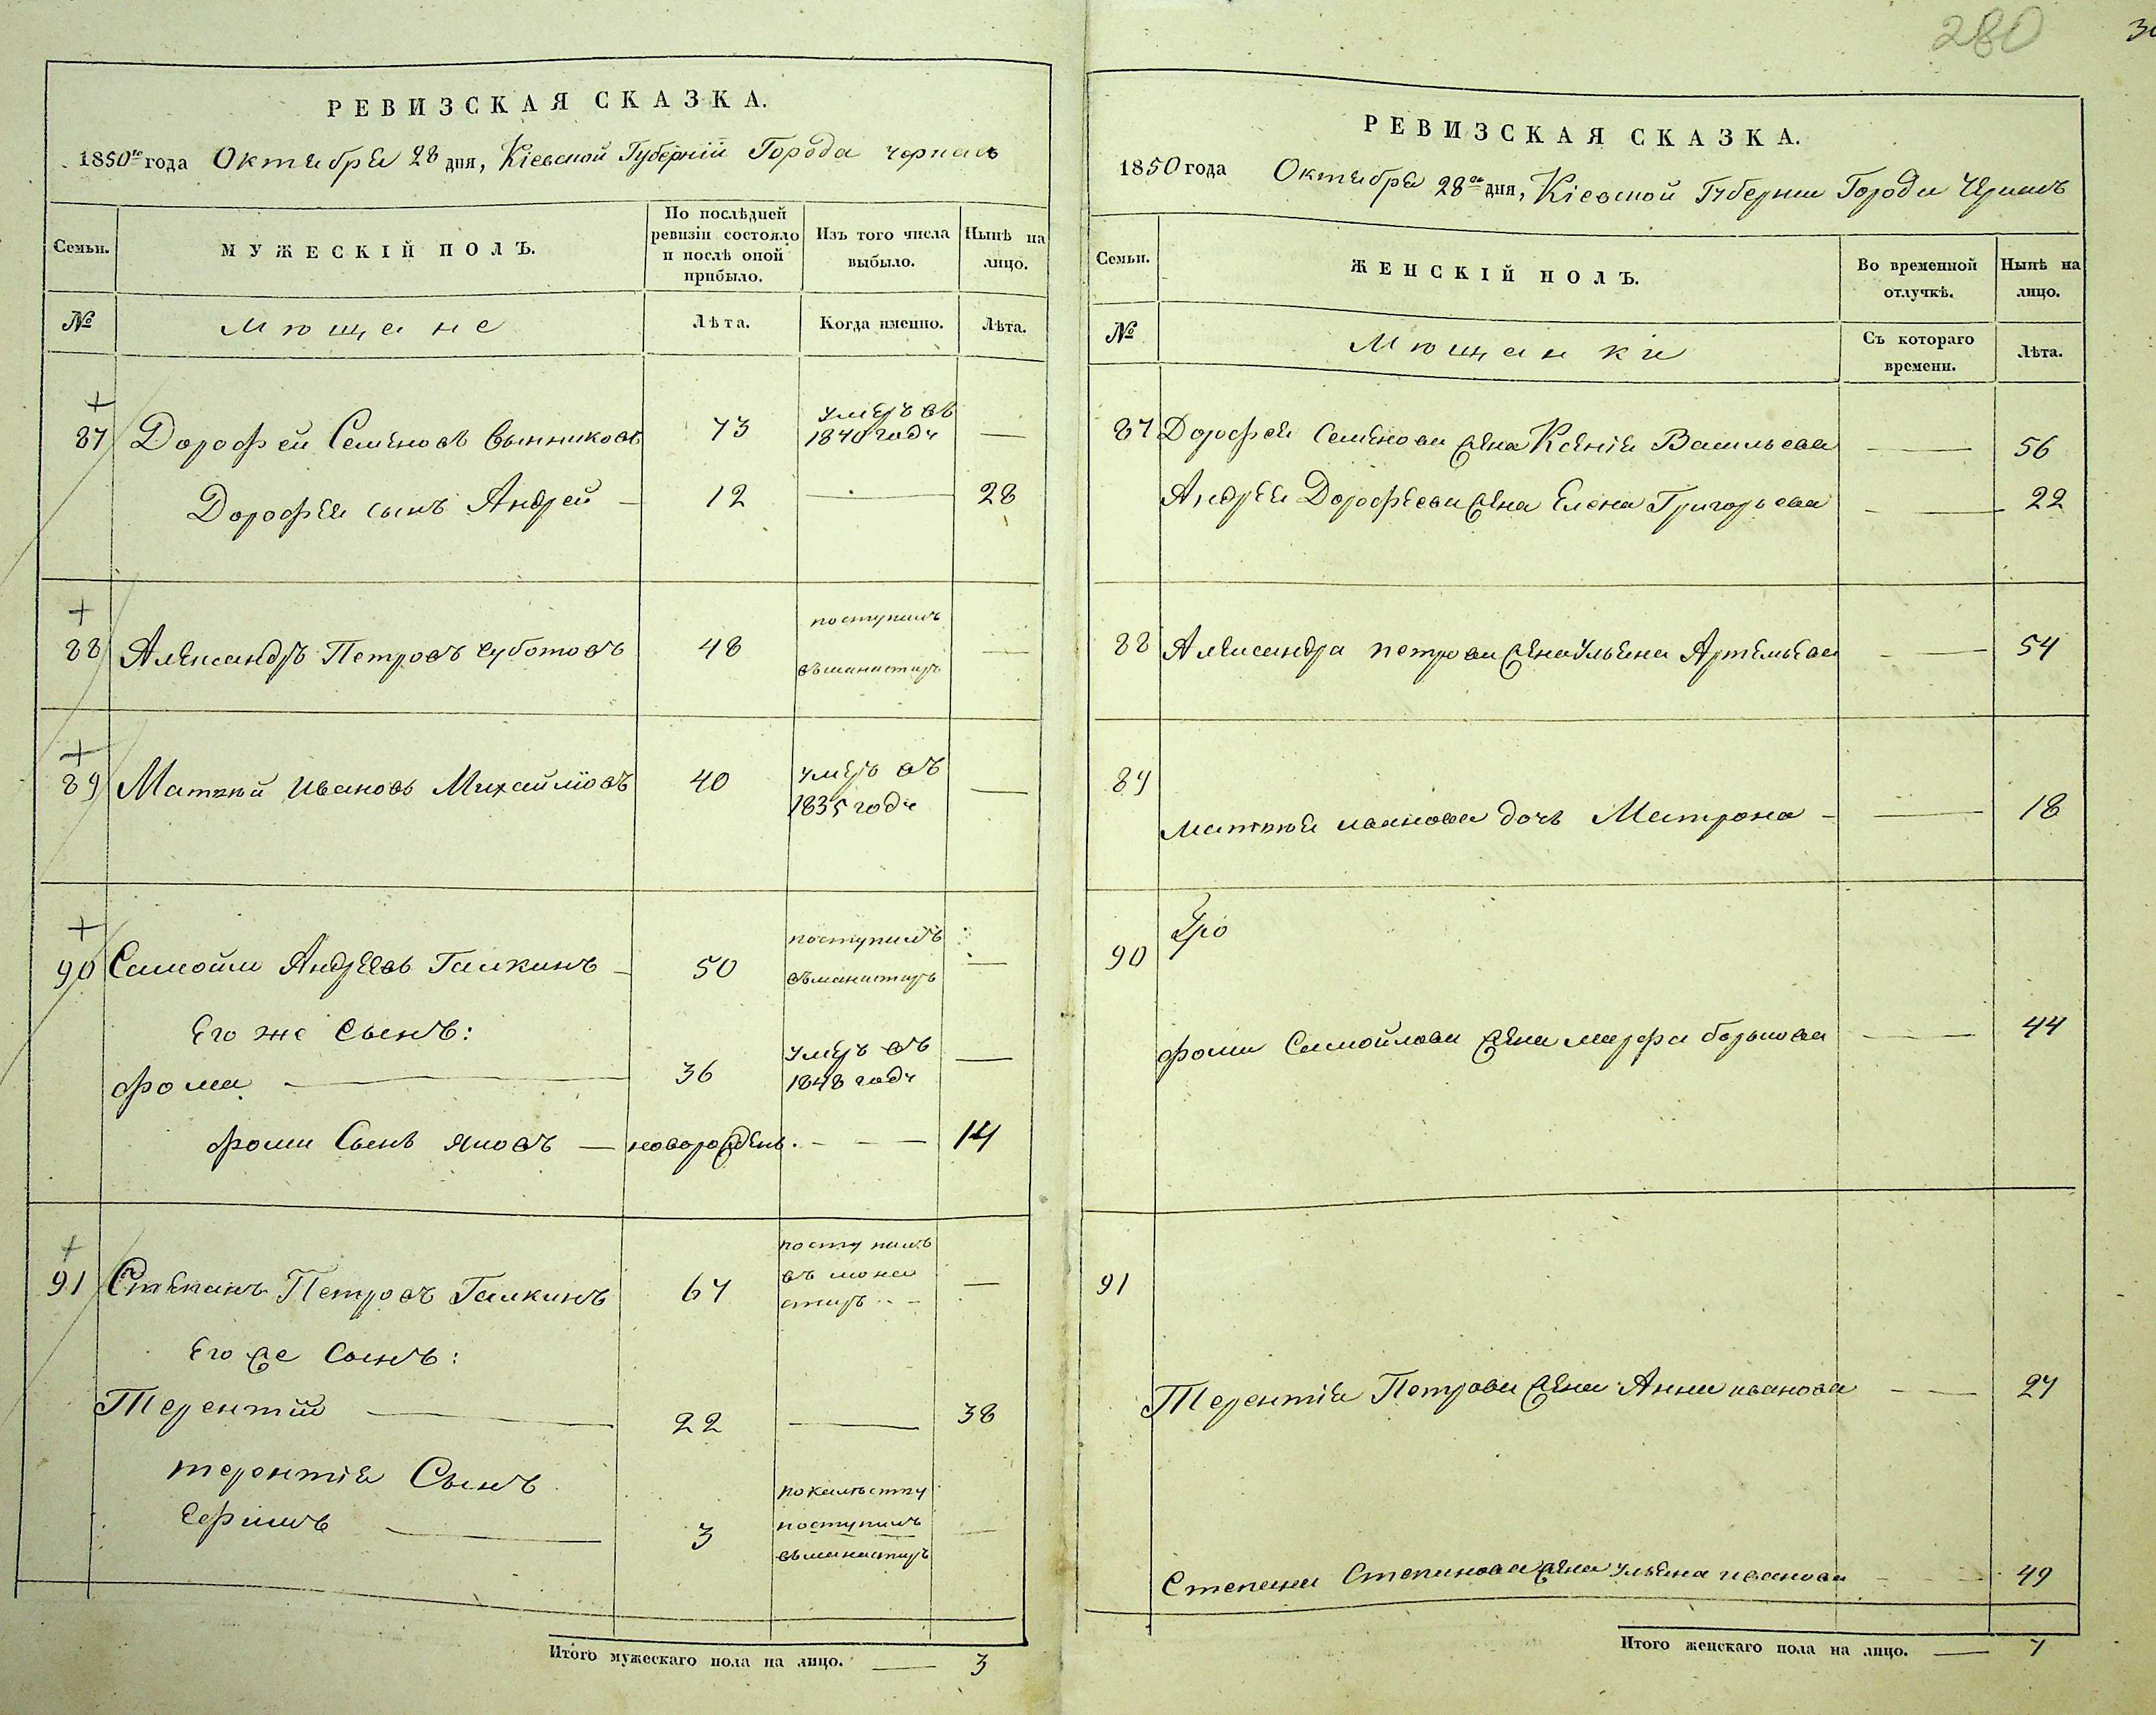 280
РЕВИЗСКАЯ СКАЗКА.
1850го года Октября 28 дня, Кіевской Губерній Города Черкас
Семьи.
МУЖЕСКІЙ ПОЛЪ.
По послѣдней ревизіи состояло и послѣ оной прибыло.
Изъ того числа выбыло.
Нынѣ на лицо.
№
Мѣщане
Лѣта.
Когда именно.
Лѣта.
87 Дорофей Семеновъ Винниковъ 73 умеръ въ 1840 году —
Дорофея сынъ Андрей — 12 — 28
88 Александръ Петровъ Суботовъ 48 поступилъ въ манастиръ —
89 Матвѣй Ивановъ Михайловъ 40 умеръ въ 1835 году —
90 Самойли Андреевъ Галкинъ — 50 поступилъ въ манастиръ —
Его же Сынъ:
Фома — 36 умеръ въ 1848 году —
Фоми Сынъ Яковъ — новорожденъ. — 14
91 Степанъ Петровъ Галкинъ 67 поступилъ въ мона стиръ —
Его же Сынъ:
Терентій — 22 — 38
терентія Сынъ
Ефимъ — 3 поступилъ въ манастиръ —
Итого мужескаго пола на лицо. — 3
РЕВИЗСКАЯ СКАЗКА.
1850 года Октября 28го дня, Кіевской Губернии Города Черкасъ
Семьи.
ЖЕНСКІЙ ПОЛЪ.
Во временной отлучкѣ.
Нынѣ на лицо.
№
Мѣщанки
Съ котораго времени.
Лѣта.
87 Дорофея Семенова жена Ксенія Васильева — 56
Андрея Дорофеева жена Елена Григорьева — 22
88 Александра петрова жена Ульяна Артемьева — 54
89
матвѣя иванова дочь Матрона — 18
90
Фоми Самойлова жена марфа борисова — 44
91
Терентія Петрова жена Анна иванова — 27
Степана Степанова жена ульяна иванова — 49
Итого женскаго пола на лицо. — 7